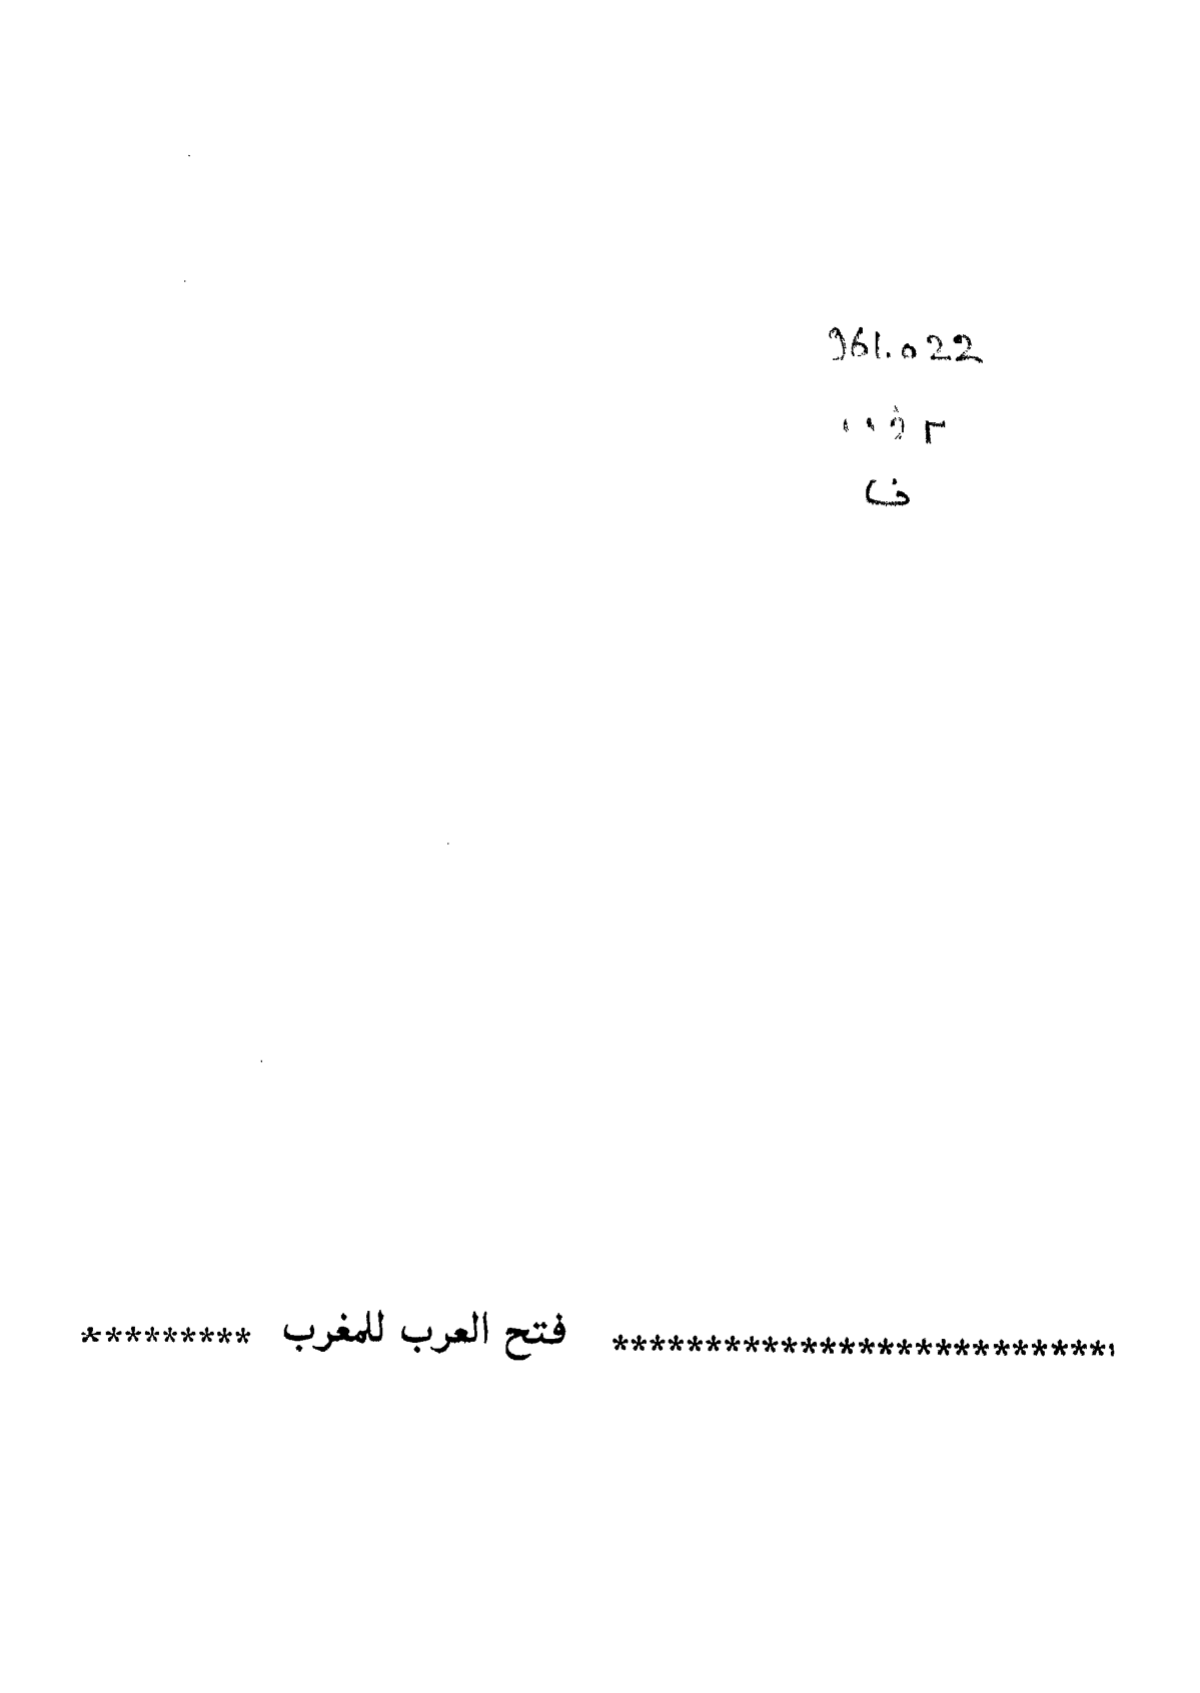 961.022
ف
*************************** فتح العرب للمغرب *********